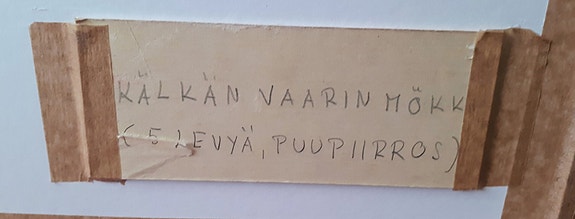 KÄLKÄN VAARIN MÖKK
( 5 LEVYÄ, PUUPIIRROS)